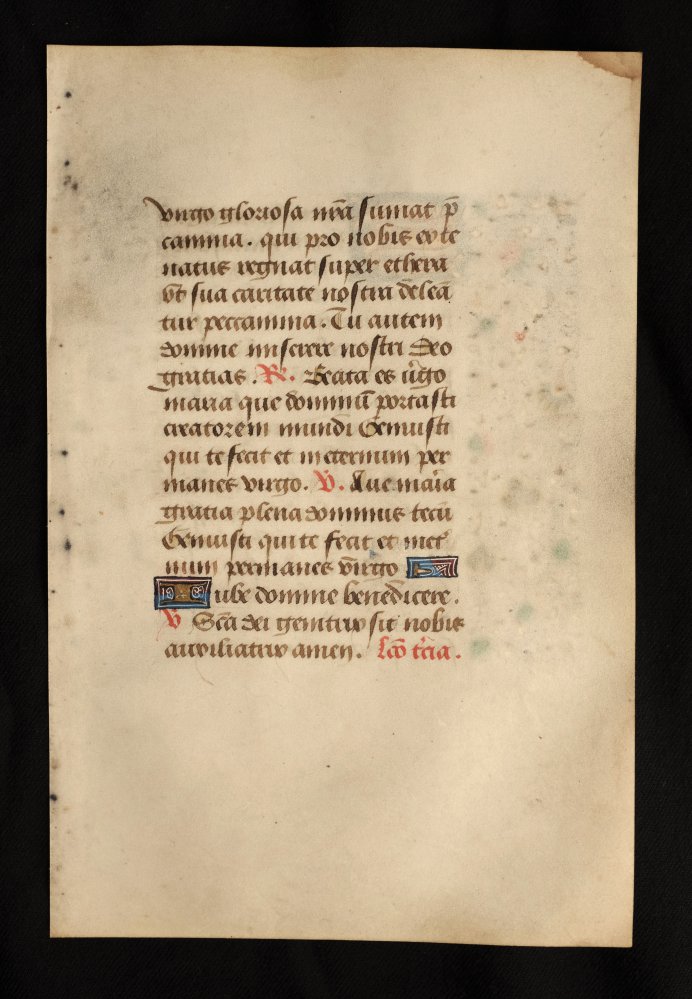 virgo gloriosa nr̄a sumat p̄
camina. qui pro nobis ex te
natus regnat super ethera
Vt sua caritate nostra deleā
tur peccamina. Tu autem
domine miserere nostri Deo
gratias. R̷. Beata es v̇go
maria que dominū portasti
creatorem mundi Genuisti
qui te fecit et in eternum per
manes virgo. V̷. Aue maria
gratia plena dominus tecū
Genuisti qui te fecit et in et̾
num permanes virgo
Iube domne benedicere.
V̷ Sc̄a dei genitrix sit nobis
auxiliatrix amen. Lc̄o t̾cia.